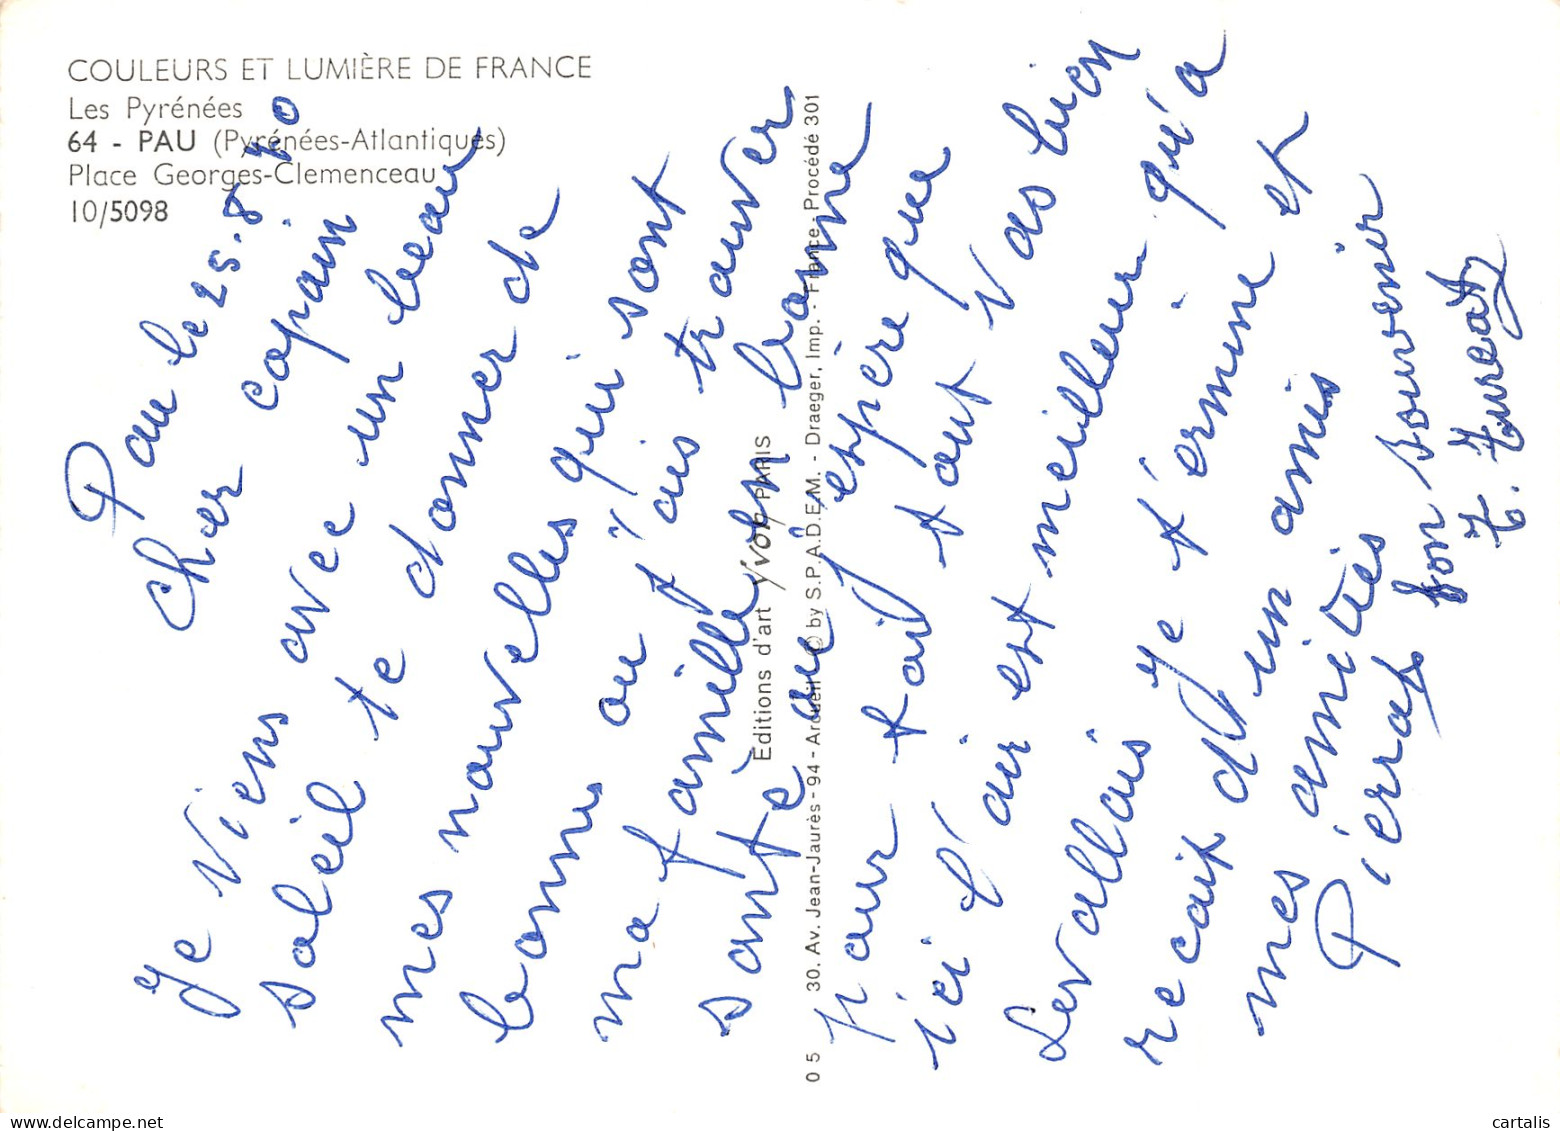 COULEURS ET LUMIÈRE DE FRANCE
Les Pyrénées
64 - PAU (Pyrénées-Atlantiques)
Place Georges-Clemenceau
10/5098
Pau le 25.8.70
Cher copain
Je viens avec un beau
soleil te donner de
mes nouvelles qui sont
bonnes ou j'ais trouver
ma famille en bonne
santè que j'espère que
pour toi tout vas bien
ici l'air est meilleur qu'a
Levallois je termine et
recoit d'un amis
mes amitiés
Pierrot
bon souvenir
T. Tureaty
Editions d'art Yvon PARIS
0 5 30. Av. Jean-Jaurès - 94 - Arcueil © by S.P.A.D.E.M. - Draeger, Imp. - France. Procédé 301
www.delcampe.net
cartalis